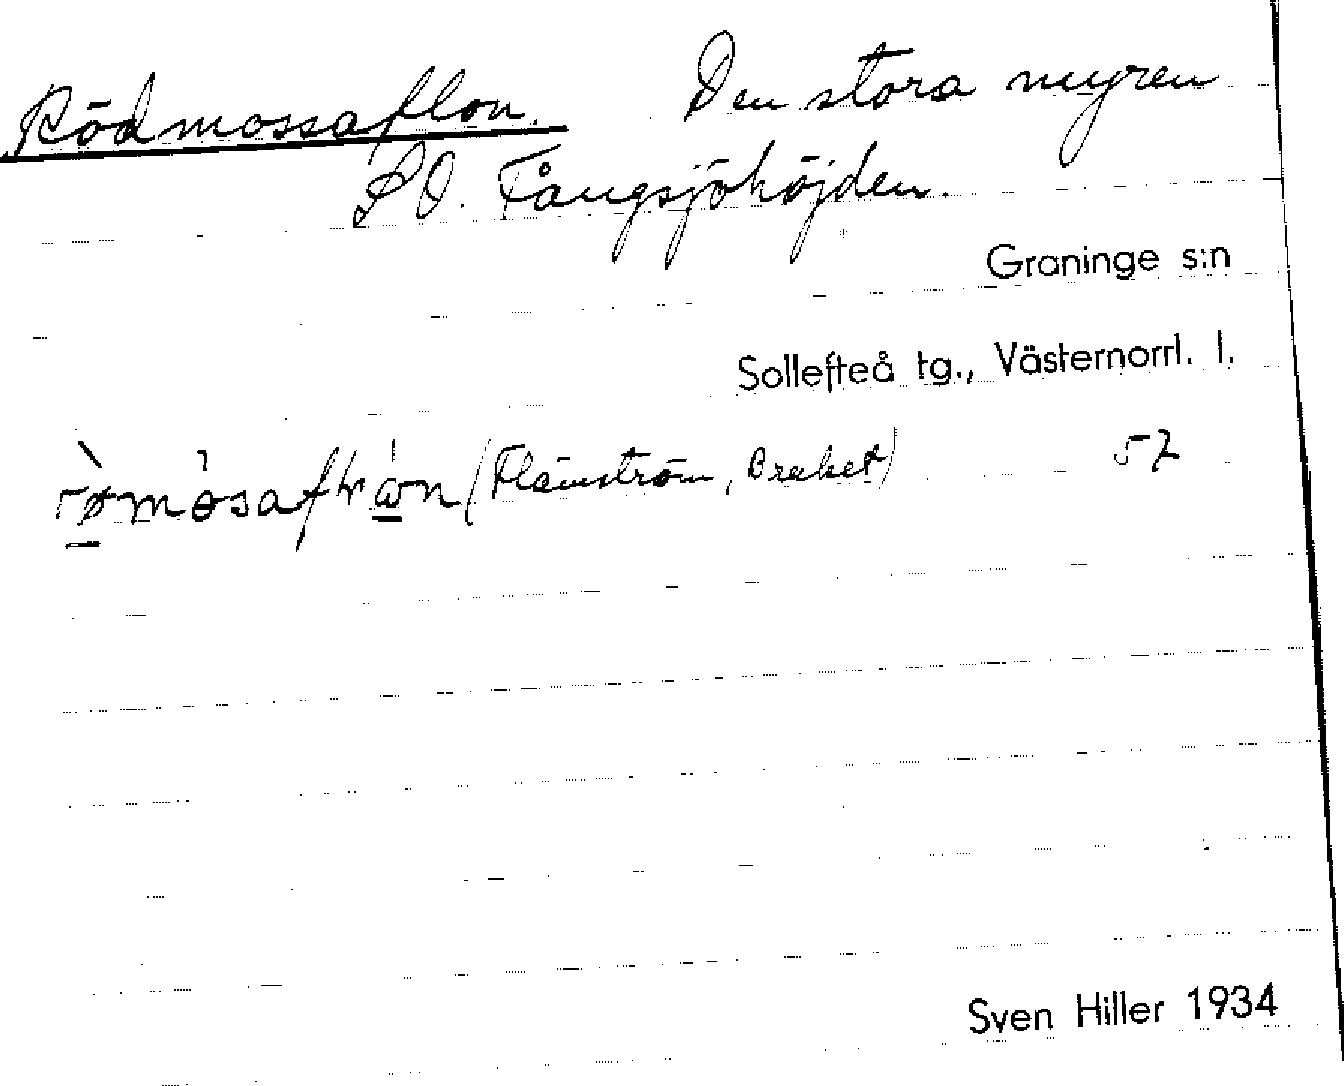 Rödmossaflon. Den stora myren
SO. Tångsjöhöjden.
Graninge s:n
Sollefteå tg., Västernorrl. l.
(Flänström, Bruket) 57
Sven Hiller 1934